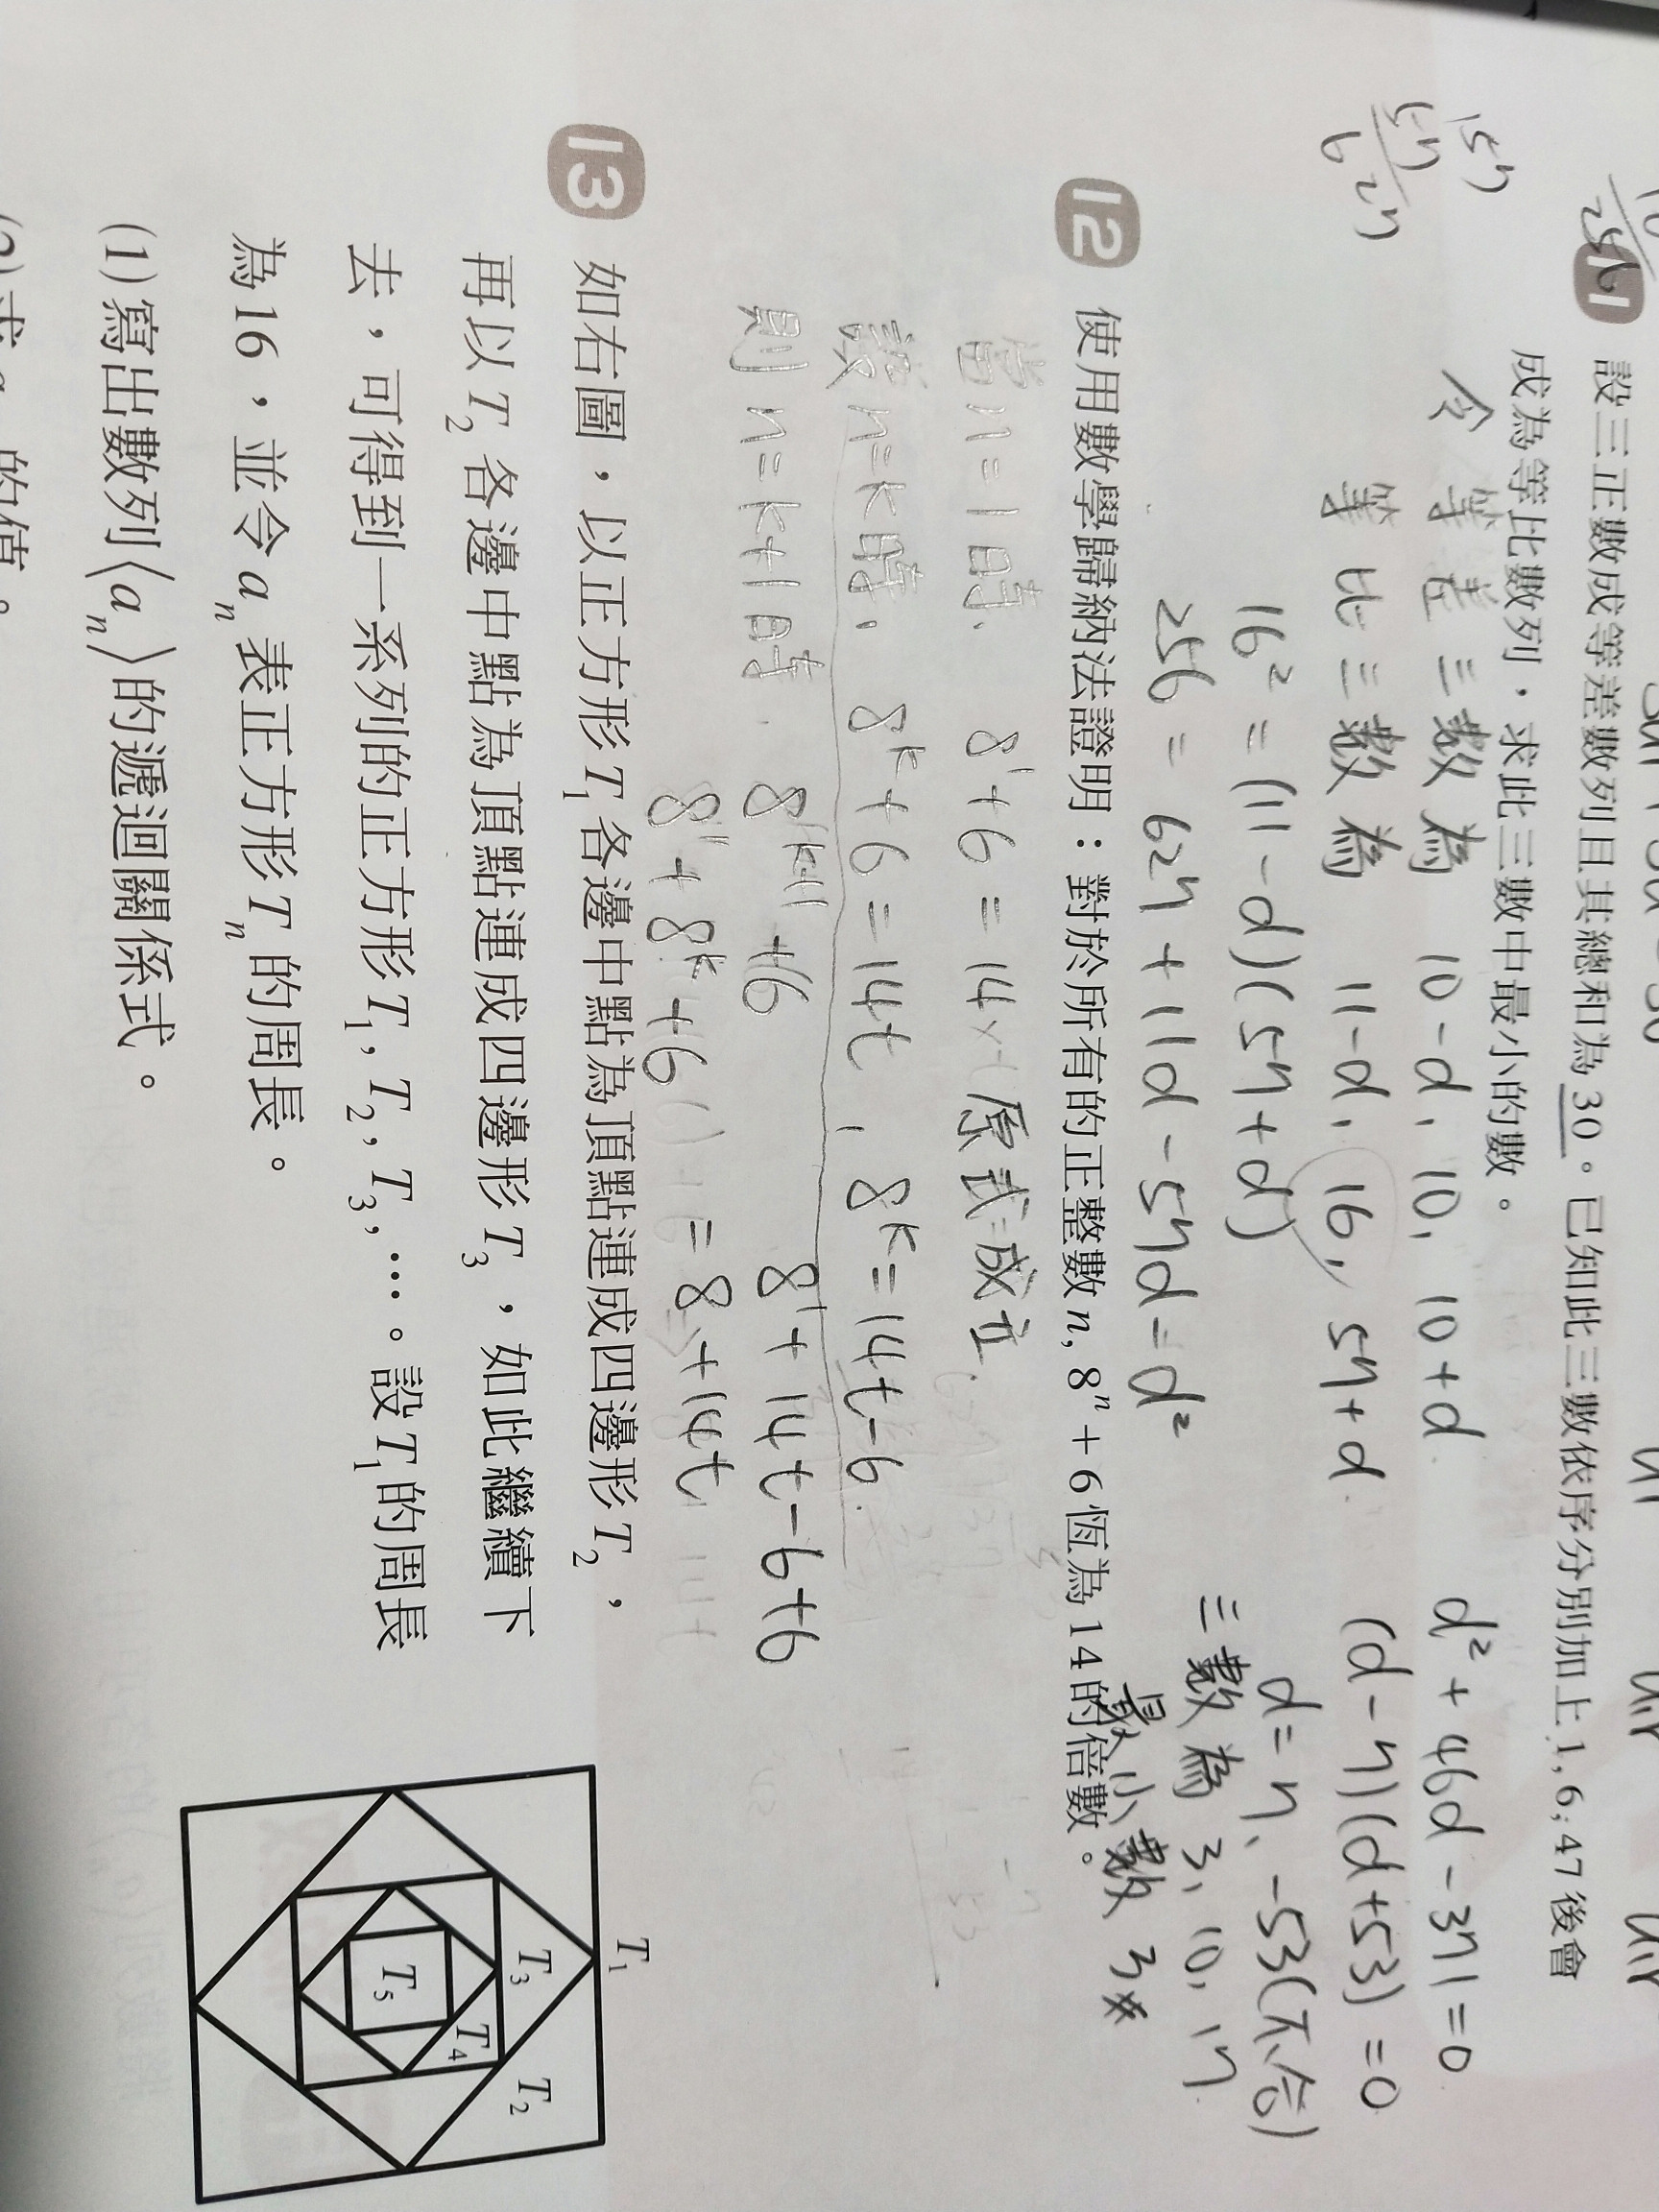 11 設三正數成等差數列且其總和為30。已知此三數依序分別加上1, 6, 47後會
成為等比數列，求此三數中最小的數。
令 等差三數為 10-d, 10, 10+d
等比三數為 11-d, 16, 57+d
16² = (11-d)(57+d)
256 = 627 + 11d - 57d - d²
d² + 46d - 371 = 0
(d-7)(d+53) = 0
d = 7, -53(不合)
三數為 3, 10, 17
最小數 3
12 使用數學歸納法證明：對於所有的正整數n, 8ⁿ + 6恆為14的倍數。
當 n=1 時, 8¹+6 = 14×1 原式成立
設 n=k 時, 8ᵏ+6=14t, 8ᵏ=14t-6
則 n=k+1 時, 8ᵏ⁺¹+6 8¹+14t-6+6
8¹+8ᵏ+6 = 8+14t
13 如右圖，以正方形T₁各邊中點為頂點連成四邊形T₂，
再以T₂各邊中點為頂點連成四邊形T₃，如此繼續下
去，可得到一系列的正方形T₁, T₂, T₃, …。設T₁的周長
為16，並令aₙ表正方形Tₙ的周長。
(1)寫出數列⟨aₙ⟩的遞迴關係式。
的值。
T₁
T₂
T₃
T₄
T₅